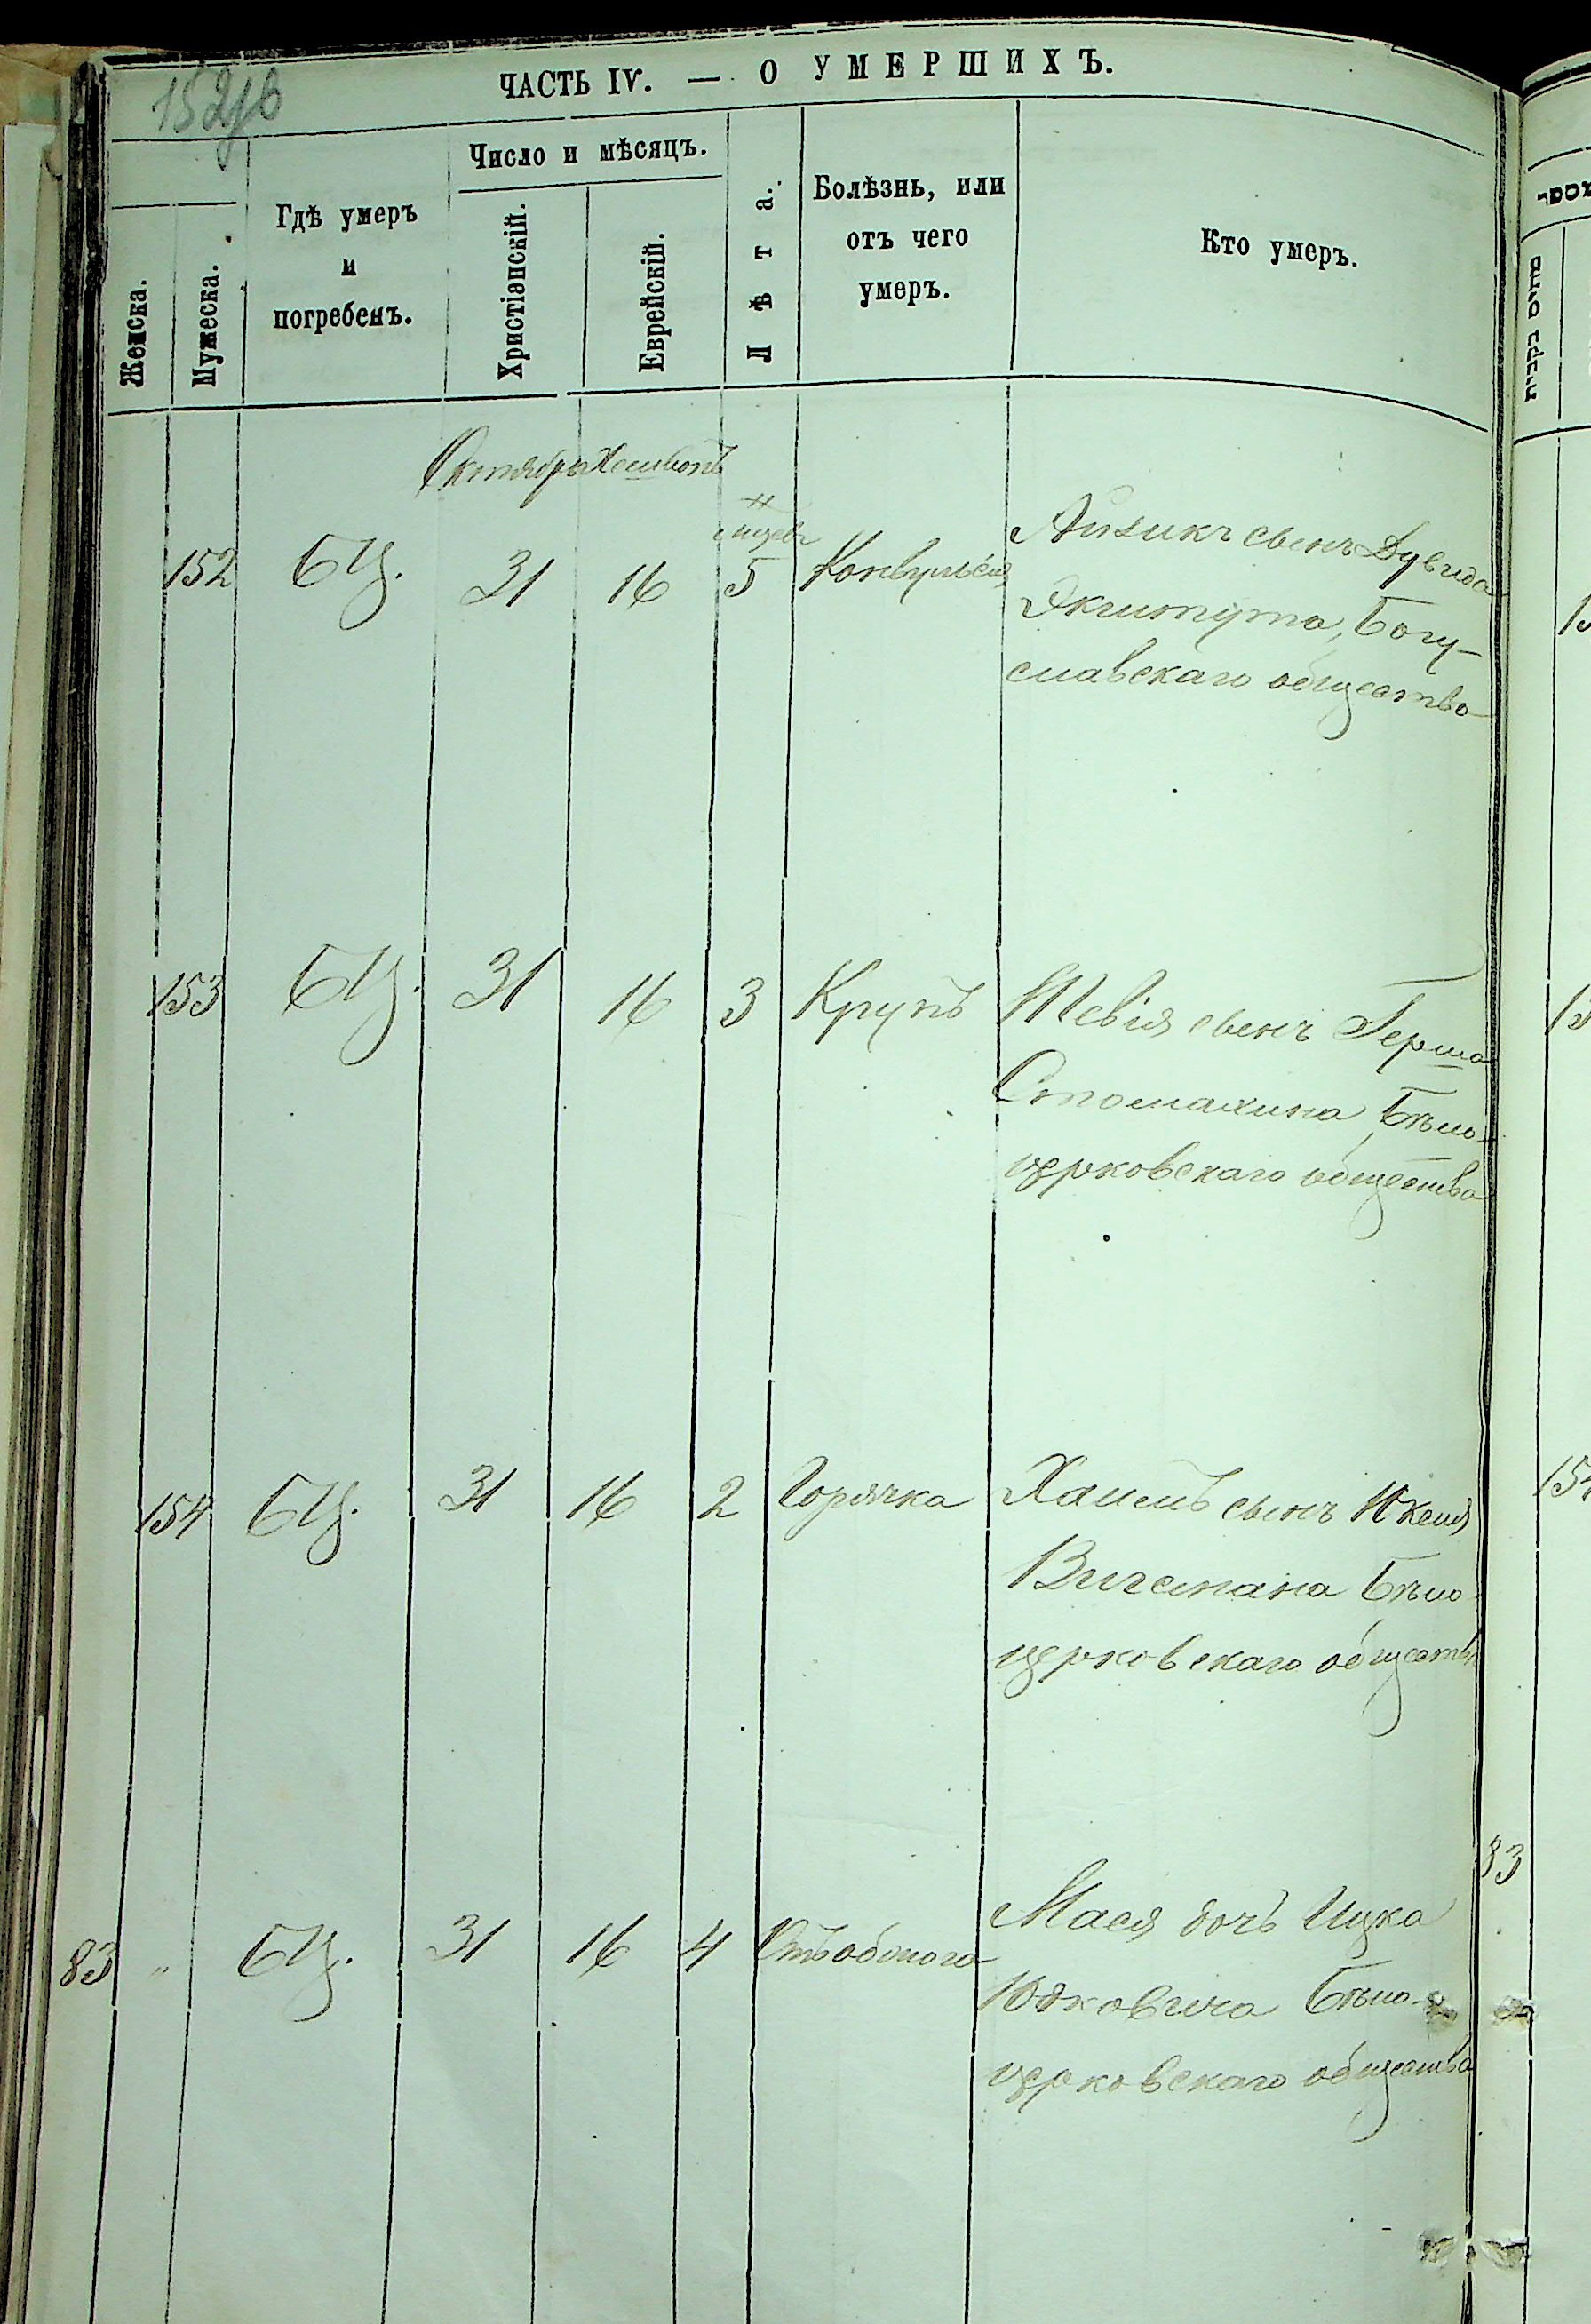 ЧАСТЬ IV. — О УМЕРШИХЪ.
Женска.
Мужеска.
Гдѣ умеръ
и
погребенъ.
Число и мѣсяцъ.
Христіанскій.
Еврейскій.
Лѣта.
Болѣзнь, или
отъ чего
умеръ.
Кто умеръ.
Октябрь Хешвонъ
152 БЦ. 31 16 5 Конвульсія
Айзикъ сынъ Дувида
Богу-
славскаго общества
153 БЦ. 31 16 3 Крупъ Шевія сынъ Герша
Стомахина, Бѣло-
церковскаго общества
154 БЦ. 31 16 2 Горячка Хаимъ сынъ Юкеля
Вигемана Бѣло
церковскаго общества
83 " БЦ. 31 16 4 Мася дочь Ицка
Юдковича Бѣло-
церковскаго общества
83
154